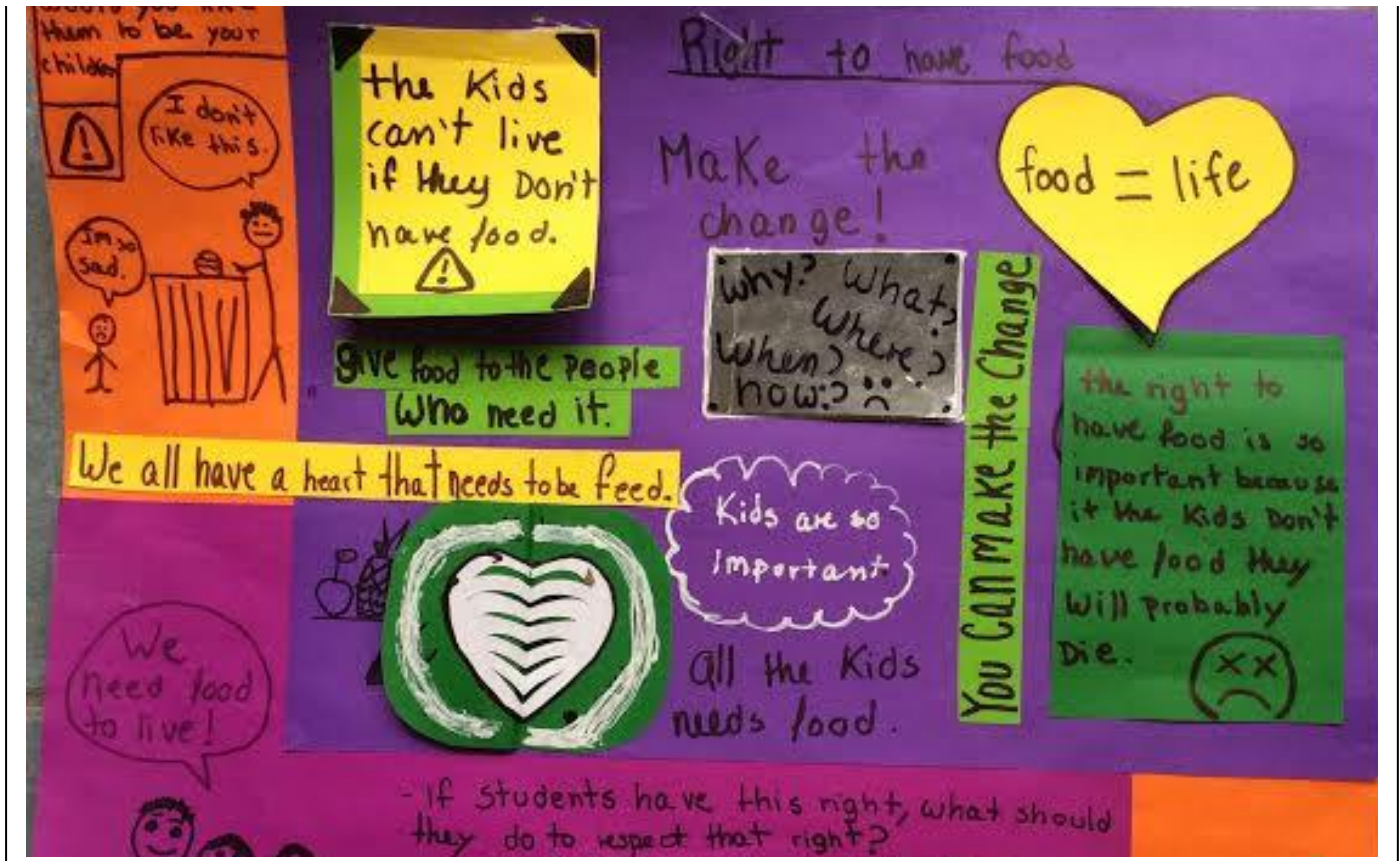 them to be your
children
I don't
like this.
Im so
sad.
the Kids
can't live
if they Don't
have food.
Right to have food
Make the
change!
food = life
why? What?
Where?
When?
how?
You Can Make the Change
give food to the People
Who need it.
We all have a heart that needs to be feed.
Kids are so
important.
all the Kids
needs food.
the right to
have food is so
important because
if the Kids Don't
have food they
Will probably
Die.
We
need food
to live!
- If students have this right, what should
they do to respect that right?